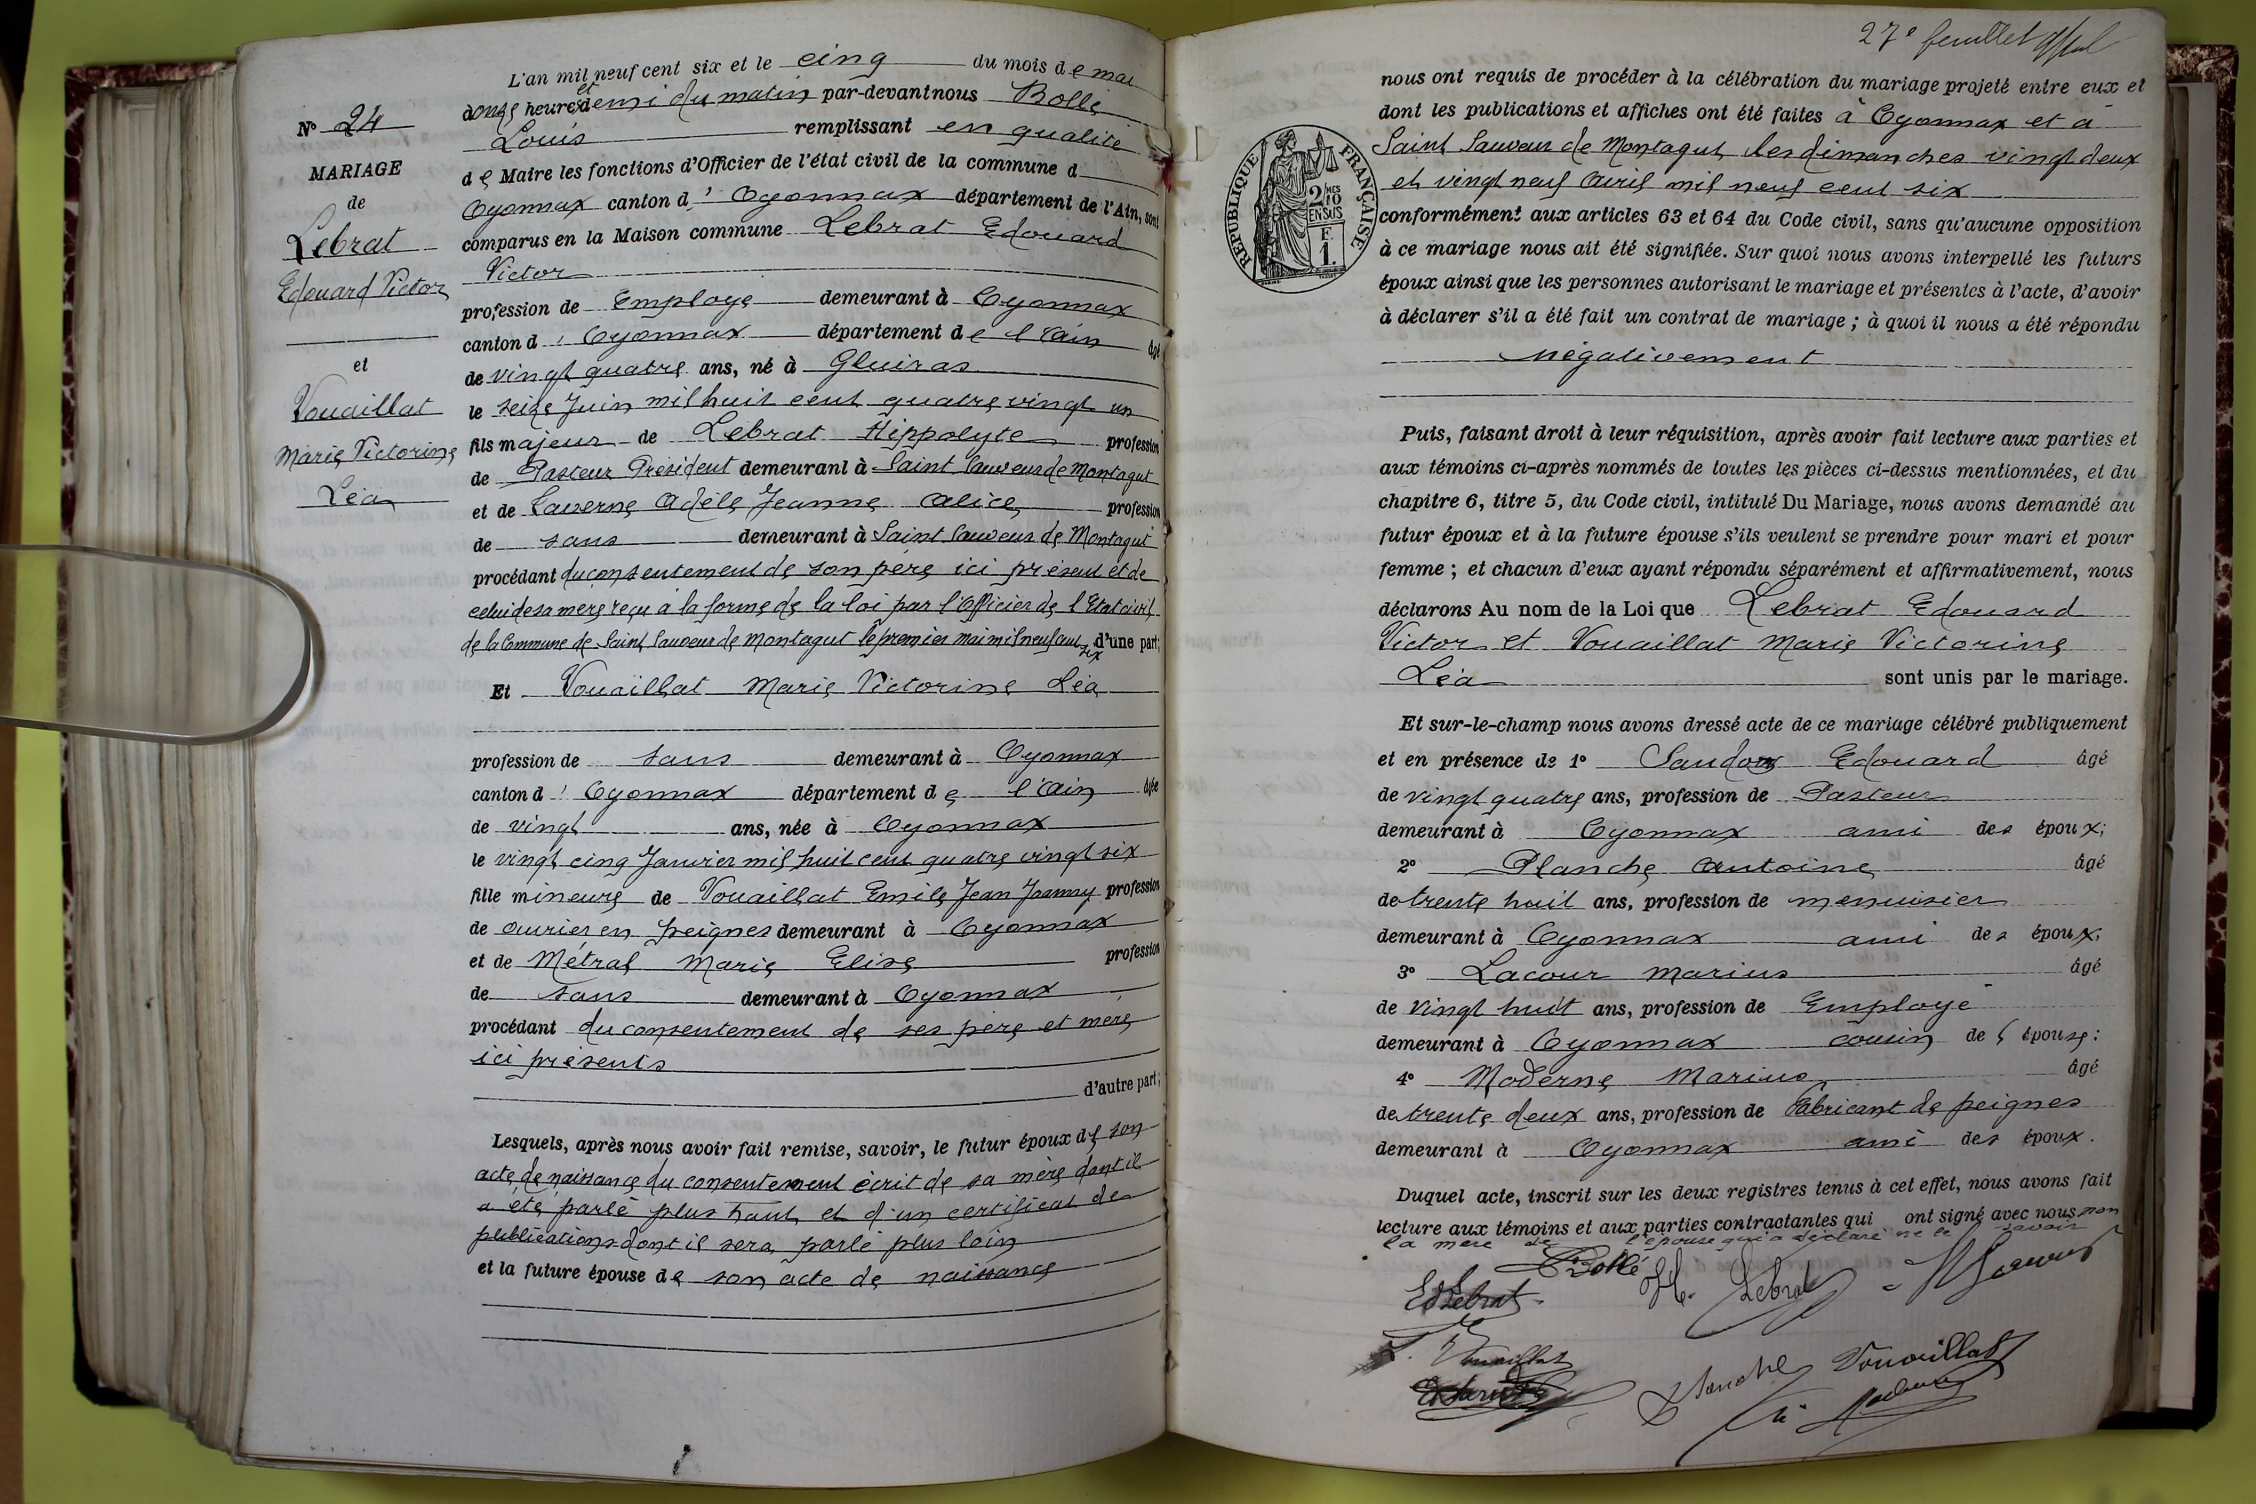 L'an mil neuf cent six et le cinq du mois de mai
N° 24
à onze heures et demi du matin par-devant nous Bollé
Louis remplissant en qualité
de Maire les fonctions d'Officier de l'état civil de la commune d
Oyonnax canton d' Oyonnax département de l'Ain, sont
comparus en la Maison commune Lebrat Edouard
Victor
profession de Employé demeurant à Oyonnax
canton d' Oyonnax département de l'Ain âgé
de vingt quatre ans, né à Gluiras
le seize Juin mil huit cent quatre vingt un
fils majeur de Lebrat Hippolyte profession
de Pasteur Président demeurant à Saint Sauveur de Montagut
et de Laverne Adèle Jeanne Alice profession
de sans demeurant à Saint Sauveur de Montagut
procédant du consentement de son père ici présent et de
celui de sa mère reçu à la forme de la loi par l'Officier de l'Etat civil
de la Commune de Saint Sauveur de Montagut le premier mai mil neuf cent six d'une part;
Et Vouaillat Marie Victorine Léa
profession de sans demeurant à Oyonnax
canton d' Oyonnax département de l'Ain âgée
de vingt ans, née à Oyonnax
le vingt cinq Janvier mil huit cent quatre vingt six
fille mineure de Vouaillat Emile Jean Joanny profession
de ouvrier en peignes demeurant à Oyonnax
et de Métral Marie Elise profession
de sans demeurant à Oyonnax
procédant du consentement de ses père et mère
ici présents
d'autre part;
Lesquels, après nous avoir fait remise, savoir, le futur époux de son
acte de naissance du consentement écrit de sa mère dont il
a été parlé plus haut et d'un certificat de
publications dont il sera parlé plus loin
et la future épouse de son acte de naissance
MARIAGE
de
Lebrat
Edouard Victor
et
Vouaillat
Marie Victorine
Léa
27e feuillet
nous ont requis de procéder à la célébration du mariage projeté entre eux et
dont les publications et affiches ont été faites à Oyonnax et à
Saint Sauveur de Montagut, les dimanches vingt deux
et vingt neuf Avril mil neuf cent six
conformément aux articles 63 et 64 du Code civil, sans qu'aucune opposition
à ce mariage nous ait été signifiée. Sur quoi nous avons interpellé les futurs
époux ainsi que les personnes autorisant le mariage et présentes à l'acte, d'avoir
à déclarer s'il a été fait un contrat de mariage ; à quoi il nous a été répondu
négativement
RÉPUBLIQUE FRANÇAISE
2/10
EN SUS
F.
1.
Puis, faisant droit à leur réquisition, après avoir fait lecture aux parties et
aux témoins ci-après nommés de toutes les pièces ci-dessus mentionnées, et du
chapitre 6, titre 5, du Code civil, intitulé Du Mariage, nous avons demandé au
futur époux et à la future épouse s'ils veulent se prendre pour mari et pour
femme ; et chacun d'eux ayant répondu séparément et affirmativement, nous
déclarons Au nom de la Loi que Lebrat Edouard
Victor et Vouaillat Marie Victorine
Léa sont unis par le mariage.
Et sur-le-champ nous avons dressé acte de ce mariage célébré publiquement
et en présence de 1° Edouard âgé
de vingt quatre ans, profession de Pasteur
demeurant à Oyonnax ami des époux;
2° Planche Antoine âgé
de trente huit ans, profession de menuisier
demeurant à Oyonnax ami des époux;
3° Lacour Marius âgé
de vingt huit ans, profession de Employé
demeurant à Oyonnax cousin de l'épouse;
4° Moderne Marius âgé
de trente deux ans, profession de Fabricant de peignes
demeurant à Oyonnax ami des époux.
Duquel acte, inscrit sur les deux registres tenus à cet effet, nous avons fait
lecture aux témoins et aux parties contractantes qui ont signé avec nous non
la mère de l'épouse qui a déclaré ne le savoir
Bollé
Ed Lebrat
H. Lebrat
Vouaillat
Planche
Vouaillat